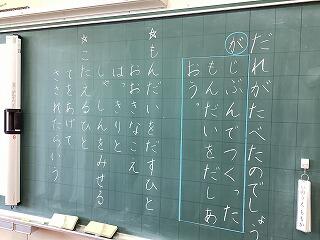 だれがたべたのでしょう
が
じぶんでつくった
もんだいをだしあ
おう。
☆もんだいをだすひと
おおきなこえ
はっきりと
しゃしんをみせる
☆こたえるひと
てをあげて
さされたらいう